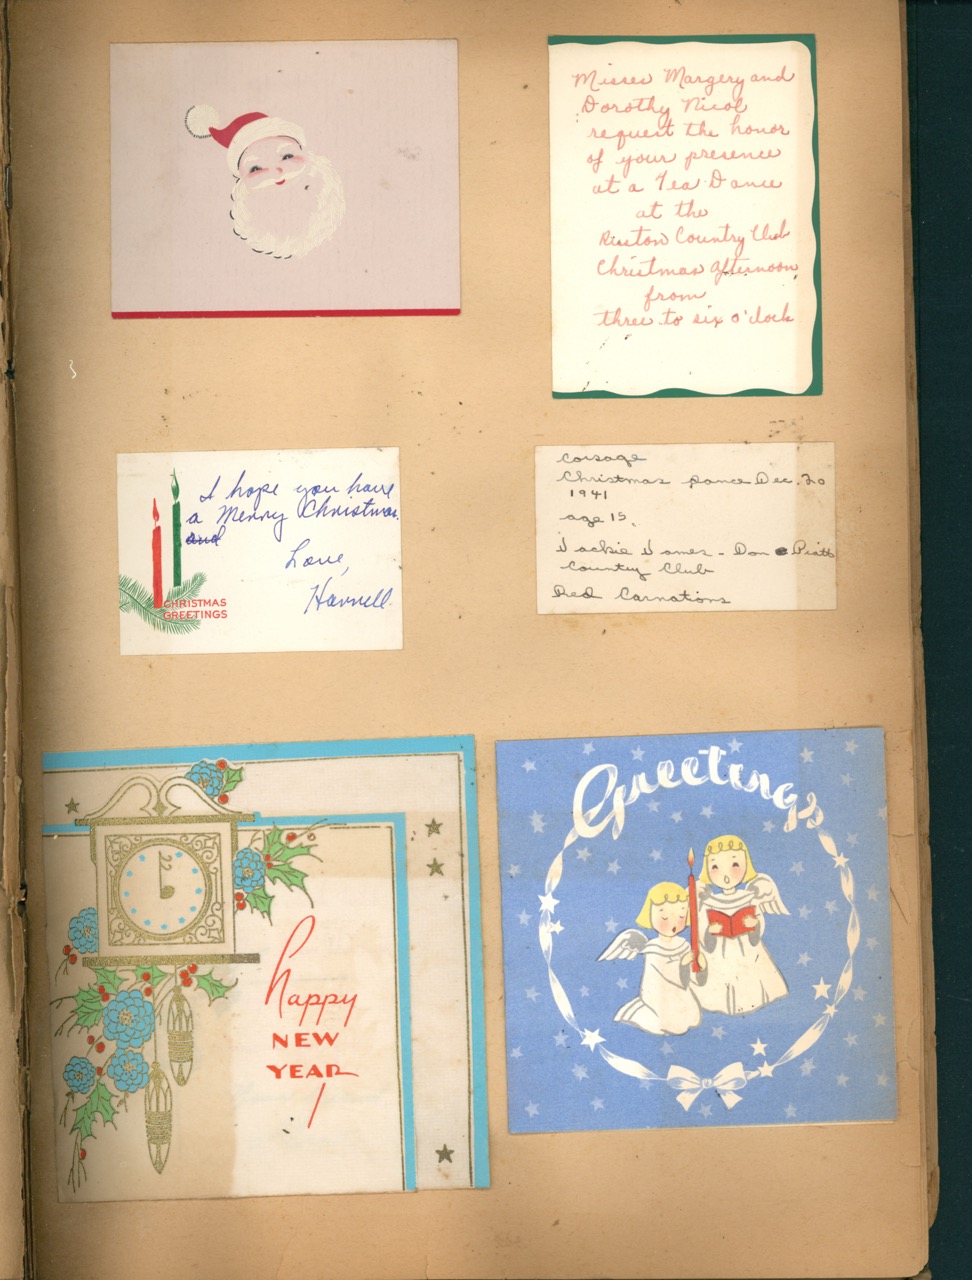 Misses Margery and
Dorothy Nicol
request the honor
of your presence
at a Tea Dance
at the
Ruston Country Club
Christmas afternoon
from
three to six o'clock
I hope you have
a Merry Christmas.
and
Love,
Harrell
CHRISTMAS
GREETINGS
Corsage
Christmas Dance Dec. 20
1941
age 15.
Jackie James - Don Piatt
Country Club
Red Carnations
happy
NEW
YEAR
Greetings